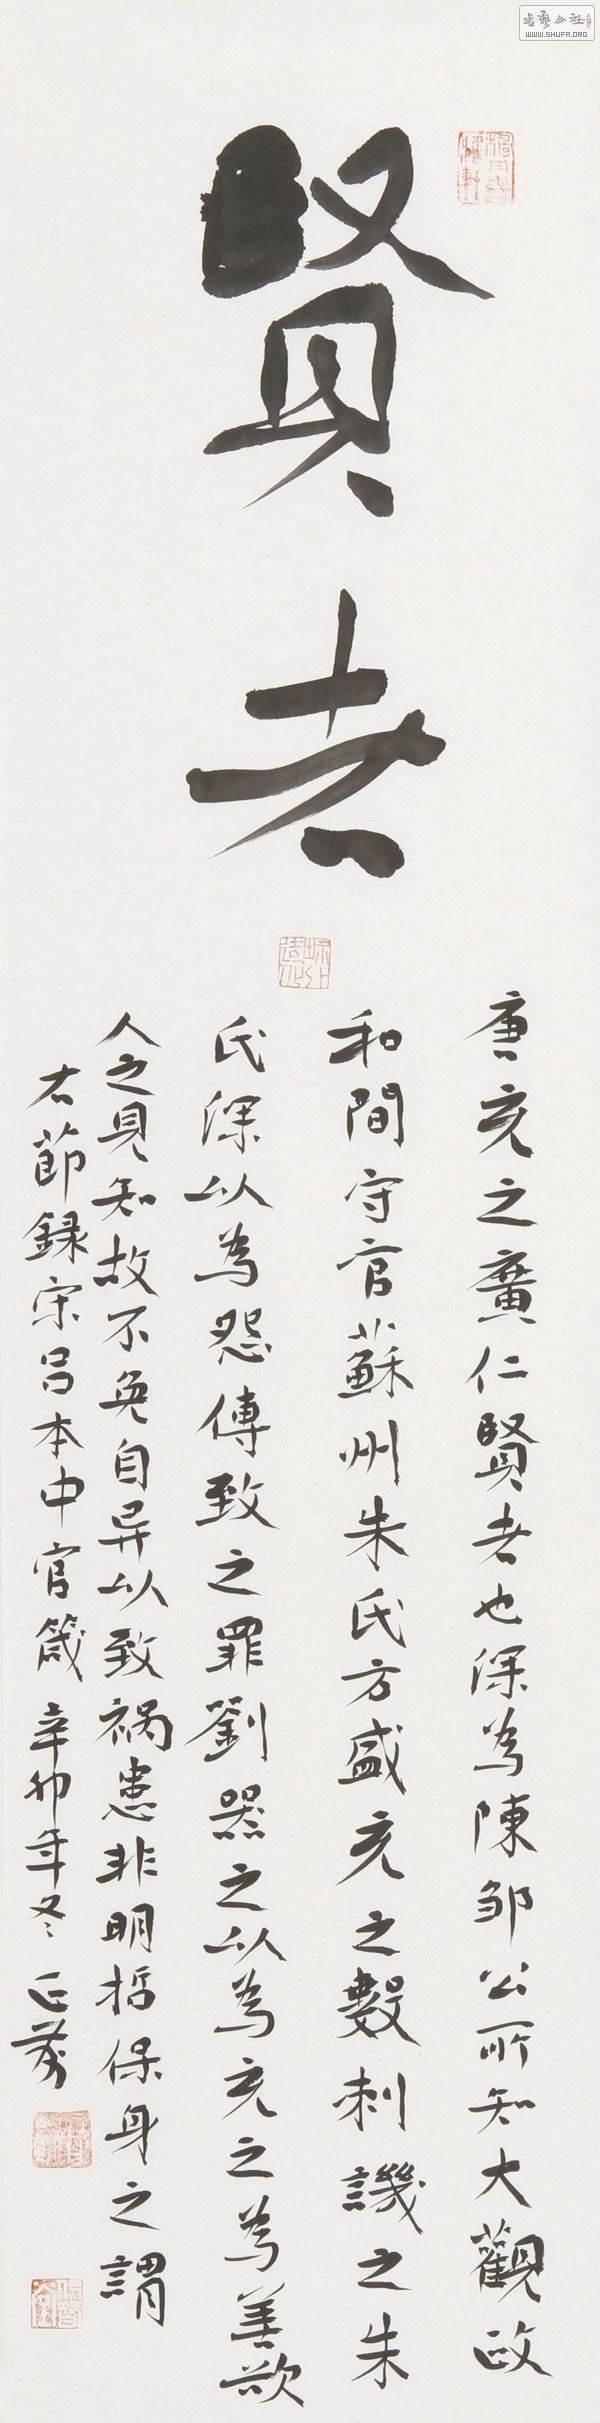 賢者
唐充之廣仁賢者也深為陳邹公所知大觀政
和間守官蘇州朱氏方盛充之數刺譏之朱
氏深以為怨傅致之罪劉器之以為充之為善欲
人之見知故不免自异以致禍患非明哲保身之謂
右節録宋吕本中官箴 辛卯年冬
WWW.SHUFA.ORG